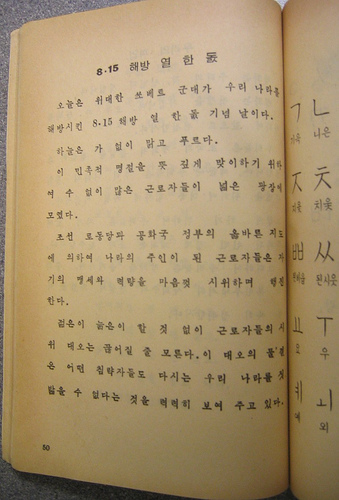 8·15 해방 열 한 돐
오늘은 위대한 쏘베트 군대가 우리 나라를
해방시킨 8·15 해방 열 한 돐 기념 날이다.
하늘은 가 없이 맑고 푸르다.
이 민족적 명절을 뜻 깊게 맞이하기 위하
여 수 없이 많은 근로자들이 넓은 광장에
모였다.
조선 로동당과 공화국 정부의 옳바른 지도
에 의하여 나라의 주인이 된 근로자들은 자
기의 맹세와 력량을 마음껏 시위하며 행진
한다.
젊은이 늙은이 할 것 없이 근로자들의 시
위 대오는 끊어질 줄 모른다. 이 대오의 물결
은 어떤 침략자들도 다시는 우리 나라를
밟을 수 없다는 것을 력력히 보여 주고 있다.
50
ㄱ ㄴ
니은
ㅈ ㅊ
치읓
ㅃ ㅆ
된시읏
ㅛ ㅜ
요 우
ㅖ ㅚ
예 외